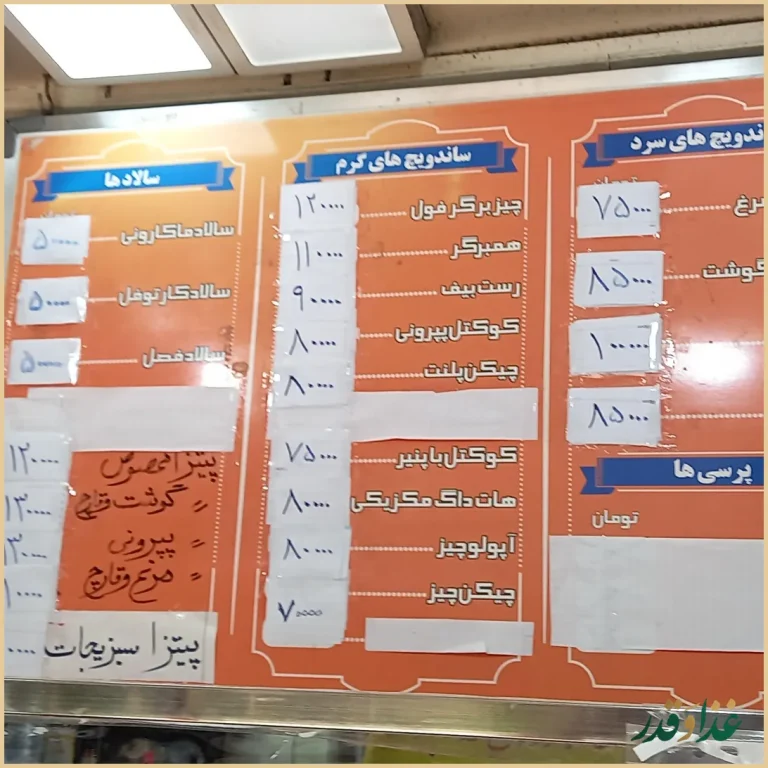 ساندویچ های سرد
تومان
مرغ ۷۵۰۰۰
گوشت ۸۵۰۰۰
۱۰۰۰۰۰
۸۵۰۰۰
پرسی ها
تومان
ساندویچ های گرم
چیزبرگر فول ۱۲۰۰۰۰
همبرگر ۱۱۰۰۰۰
رست بیف ۹۰۰۰۰
کوکتل پپرونی ۸۰۰۰۰
چیکن پلنت ۸۰۰۰۰
کوکتل با پنیر ۷۵۰۰۰
هات داگ مکزیکی ۸۰۰۰۰
آپولو چیز ۸۰۰۰۰
چیکن چیز ۷۰۰۰۰
سالادها
سالاد ماکارونی ۵۰۰۰۰
سالاد کارتوفل ۵۰۰۰۰
سالاد فصل ۵۰۰۰۰
پیتزا مخصوص ۱۲۰۰۰۰
〃 گوشت و قارچ ۱۳۰۰۰۰
〃 پپرونی ۱۳۰۰۰۰
〃 مرغ و قارچ
پیتزا سبزیجات
غذا و قدر